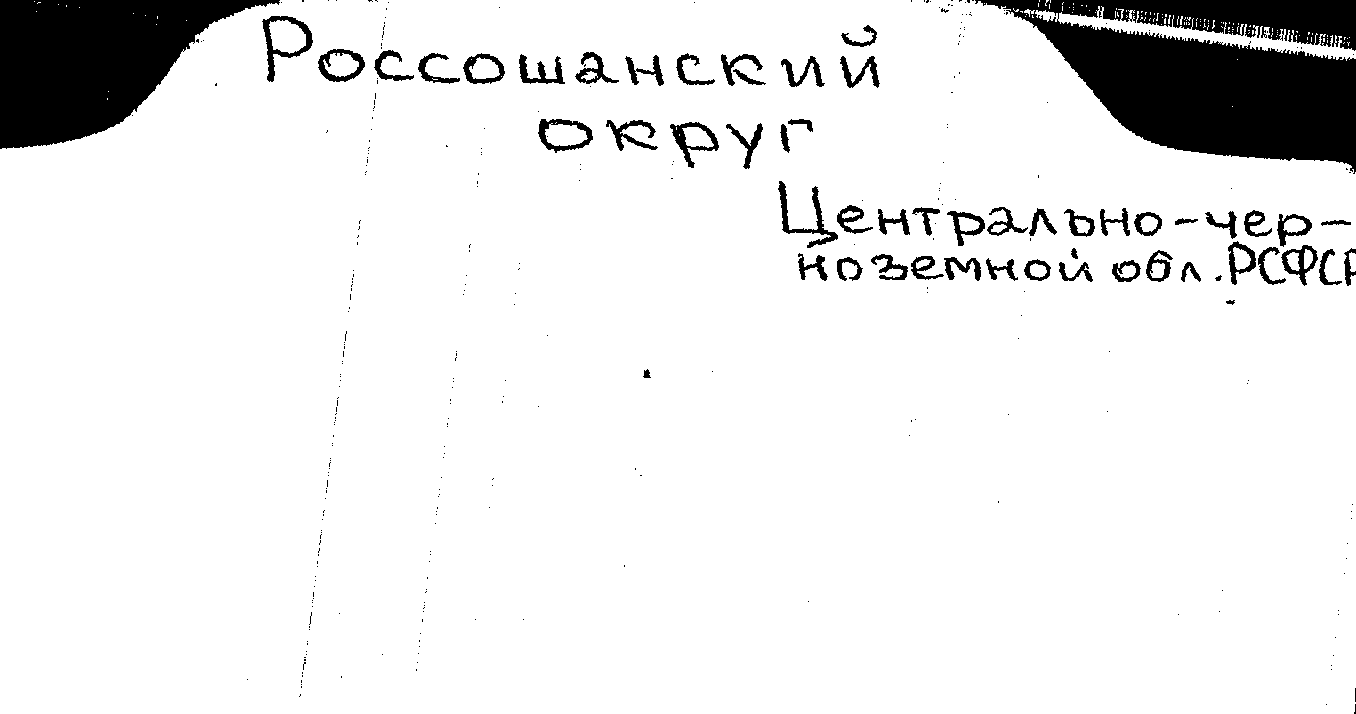 Россошанский
округ
Центрально-чер-
ноземной обл. РСФСР